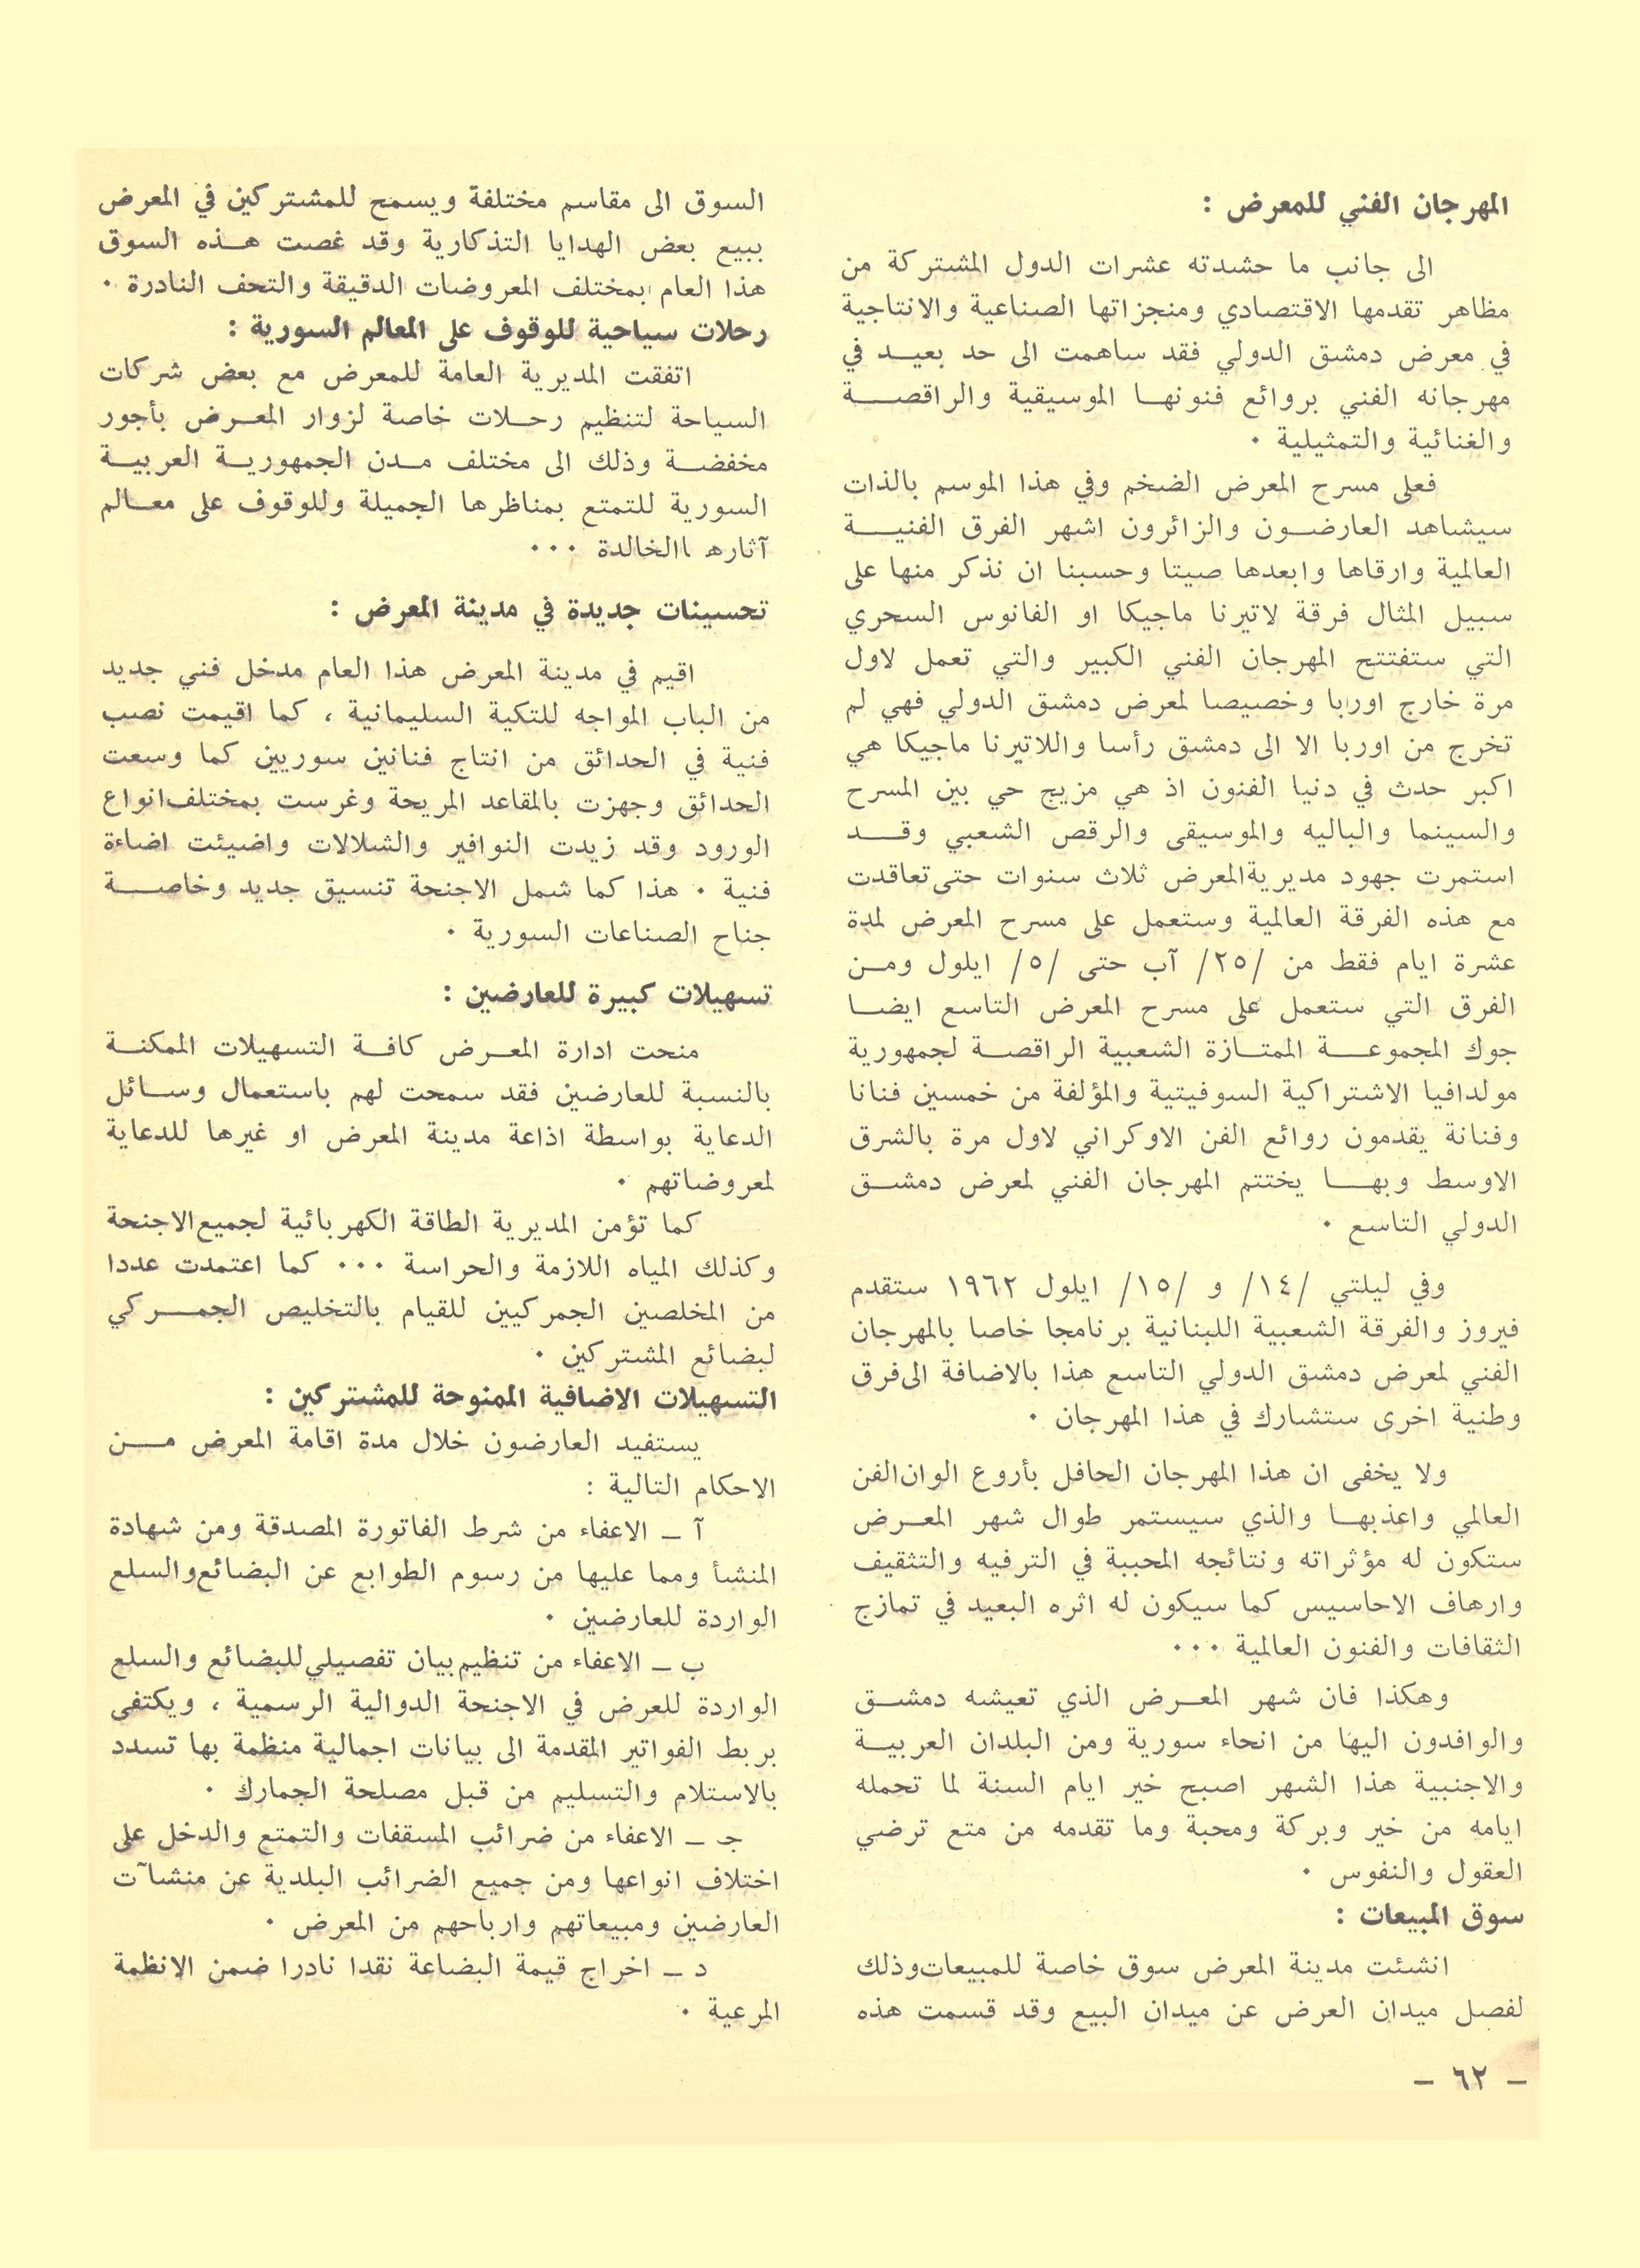 المهرجان الفني للمعرض :
الى جانب ما حشدته عشرات الدول المشتركة من
مظاهر تقدمها الاقتصادي ومنجزاتها الصناعية والانتاجية
في معرض دمشق الدولي فقد ساهمت الى حد بعيد في
مهرجانه الفني بروائع فنونها الموسيقية والراقصة
والغنائية والتمثيلية ٠
فعلى مسرح المعرض الضخم وفي هذا الموسم بالذات
سيشاهد العارضون والزائرون اشهر الفرق الفنية
العالمية وارقاها وابعدها صيتا وحسبنا ان نذكر منها على
سبيل المثال فرقة لاتيرنا ماجيكا او الفانوس السحري
التي ستفتتح المهرجان الفني الكبير والتي تعمل لاول
مرة خارج اوربا وخصيصا لمعرض دمشق الدولي فهي لم
تخرج من اوربا الا الى دمشق رأسا واللاتيرنا ماجيكا هي
اكبر حدث في دنيا الفنون اذ هي مزيج حي بين المسرح
والسينما والباليه والموسيقى والرقص الشعبي وقد
استمرت جهود مديرية المعرض ثلاث سنوات حتى تعاقدت
مع هذه الفرقة العالمية وستعمل على مسرح المعرض لمدة
عشرة ايام فقط من /٢٥/ آب حتى /٥/ ايلول ومن
الفرق التي ستعمل على مسرح المعرض التاسع ايضا
جوك المجموعة الممتازة الشعبية الراقصة لجمهورية
مولدافيا الاشتراكية السوفيتية والمؤلفة من خمسين فنانا
وفنانة يقدمون روائع الفن الاوكراني لاول مرة بالشرق
الاوسط وبها يختتم المهرجان الفني لمعرض دمشق
الدولي التاسع ٠
وفي ليلتي /١٤/ و /١٥/ ايلول ١٩٦٢ ستقدم
فيروز والفرقة الشعبية اللبنانية برنامجا خاصا بالمهرجان
الفني لمعرض دمشق الدولي التاسع هذا بالاضافة الى فرق
وطنية اخرى ستشارك في هذا المهرجان ٠
ولا يخفى ان هذا المهرجان الحافل بأروع الوان الفن
العالمي واعذبها والذي سيستمر طوال شهر المعرض
ستكون له مؤثراته ونتائجه المحببة في الترفيه والتثقيف
وارهاف الاحاسيس كما سيكون له اثره البعيد في تمازج
الثقافات والفنون العالمية ٠٠٠
وهكذا فان شهر المعرض الذي تعيشه دمشق
والوافدون اليها من انحاء سورية ومن البلدان العربية
والاجنبية هذا الشهر اصبح خير ايام السنة لما تحمله
ايامه من خير وبركة ومحبة وما تقدمه من متع ترضي
العقول والنفوس ٠
سوق المبيعات :
انشئت مدينة المعرض سوق خاصة للمبيعات وذلك
لفصل ميدان العرض عن ميدان البيع وقد قسمت هذه
السوق الى مقاسم مختلفة ويسمح للمشتركين في المعرض
ببيع بعض الهدايا التذكارية وقد غصت هذه السوق
هذا العام بمختلف المعروضات الدقيقة والتحف النادرة ٠
رحلات سياحية للوقوف على المعالم السورية :
اتفقت المديرية العامة للمعرض مع بعض شركات
السياحة لتنظيم رحلات خاصة لزوار المعرض بأجور
مخفضة وذلك الى مختلف مدن الجمهورية العربية
السورية للتمتع بمناظرها الجميلة وللوقوف على معالم
آثاره االخالدة ٠٠٠
تحسينات جديدة في مدينة المعرض :
اقيم في مدينة المعرض هذا العام مدخل فني جديد
من الباب المواجه للتكية السليمانية ، كما اقيمت نصب
فنية في الحدائق من انتاج فنانين سوريين كما وسعت
الحدائق وجهزت بالمقاعد المريحة وغرست بمختلف انواع
الورود وقد زيدت النوافير والشلالات واضيئت اضاءة
فنية ٠ هذا كما شمل الاجنحة تنسيق جديد وخاصة
جناح الصناعات السورية ٠
تسهيلات كبيرة للعارضين :
منحت ادارة المعرض كافة التسهيلات الممكنة
بالنسبة للعارضين فقد سمحت لهم باستعمال وسائل
الدعاية بواسطة اذاعة مدينة المعرض او غيرها للدعاية
لمعروضاتهم ٠
كما تؤمن المديرية الطاقة الكهربائية لجميع الاجنحة
وكذلك المياه اللازمة والحراسة ٠٠٠ كما اعتمدت عددا
من المخلصين الجمركيين للقيام بالتخليص الجمركي
لبضائع المشتركين ٠
التسهيلات الاضافية الممنوحة للمشتركين :
يستفيد العارضون خلال مدة اقامة المعرض من
الاحكام التالية :
آ ـ الاعفاء من شرط الفاتورة المصدقة ومن شهادة
المنشأ ومما عليها من رسوم الطوابع عن البضائع والسلع
الواردة للعارضين ٠
ب ـ الاعفاء من تنظيم بيان تفصيلي للبضائع والسلع
الواردة للعرض في الاجنحة الدوالية الرسمية ، ويكتفى
بربط الفواتير المقدمة الى بيانات اجمالية منظمة بها تسدد
بالاستلام والتسليم من قبل مصلحة الجمارك ٠
جـ ـ الاعفاء من ضرائب المسقفات والتمتع والدخل على
اختلاف انواعها ومن جميع الضرائب البلدية عن منشآت
العارضين ومبيعاتهم وارباحهم من المعرض ٠
د ـ اخراج قيمة البضاعة نقدا نادرا ضمن الانظمة
المرعية ٠
ـ ٦٢ ـ